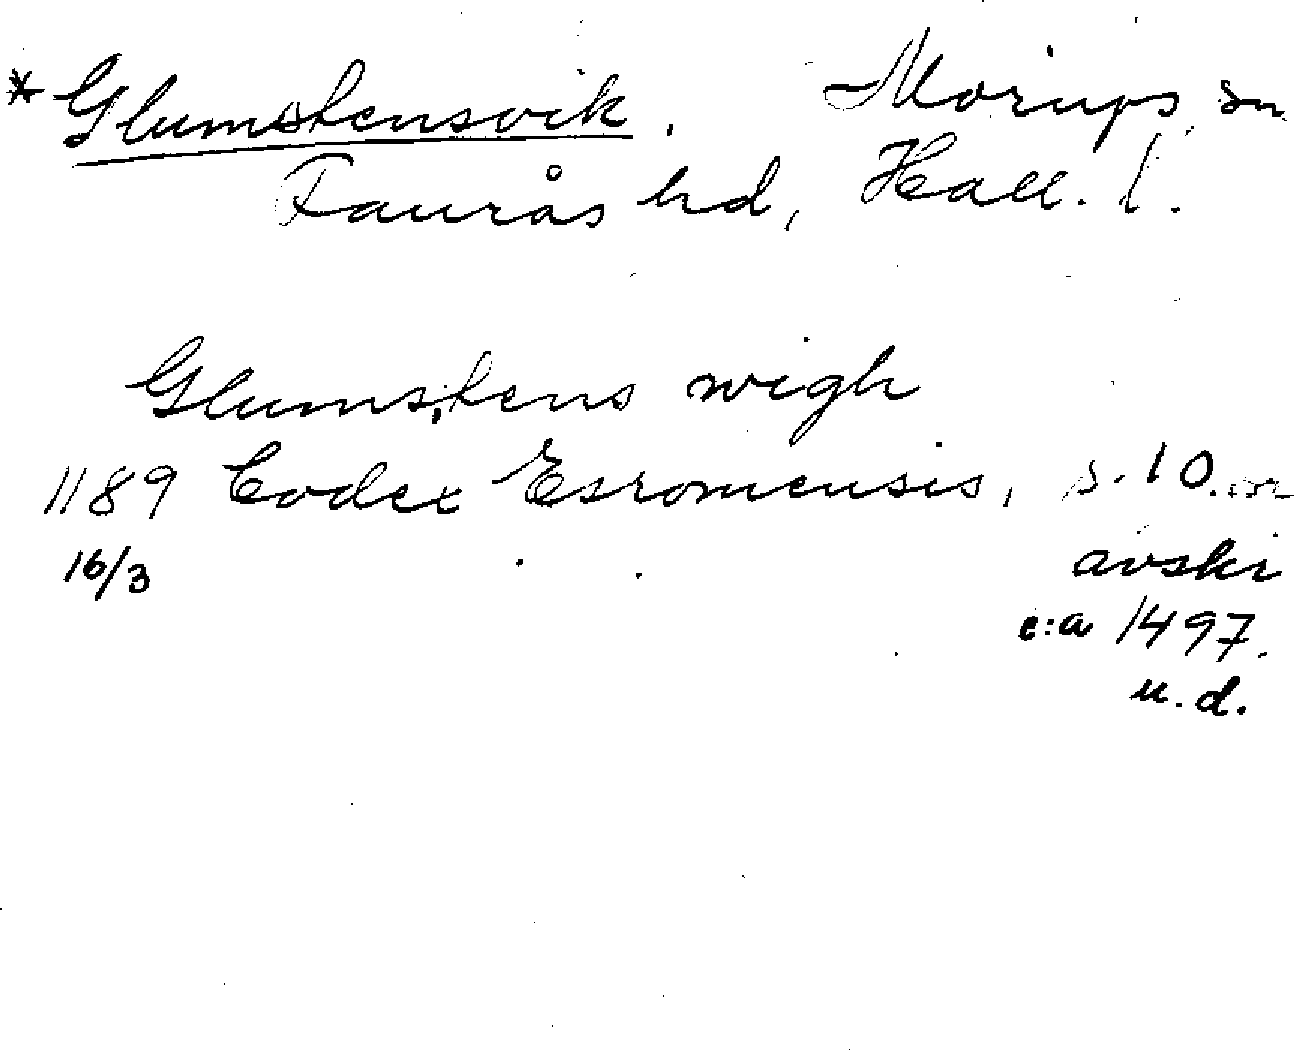 *Glumstensvik. Morups sn
Faurås hd, Hall. l.
Glumstens wigh
1189 Codex Esromensis, s. 10. or
16/3 avskr
c:a 1497.
u.d.